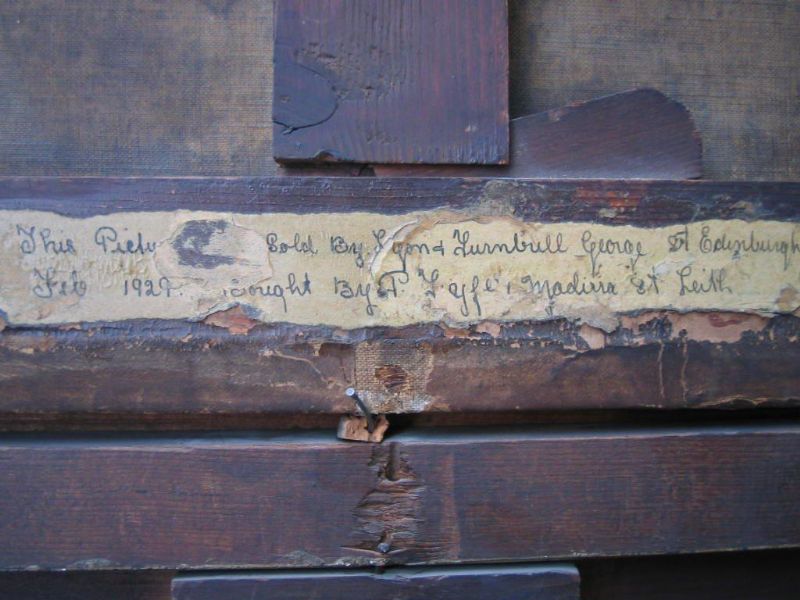 This Pictu Sold By Lyon & Turnbull George St Edinburgh
Feb 1929. Bought By P Fyfe, Madiera St Leith